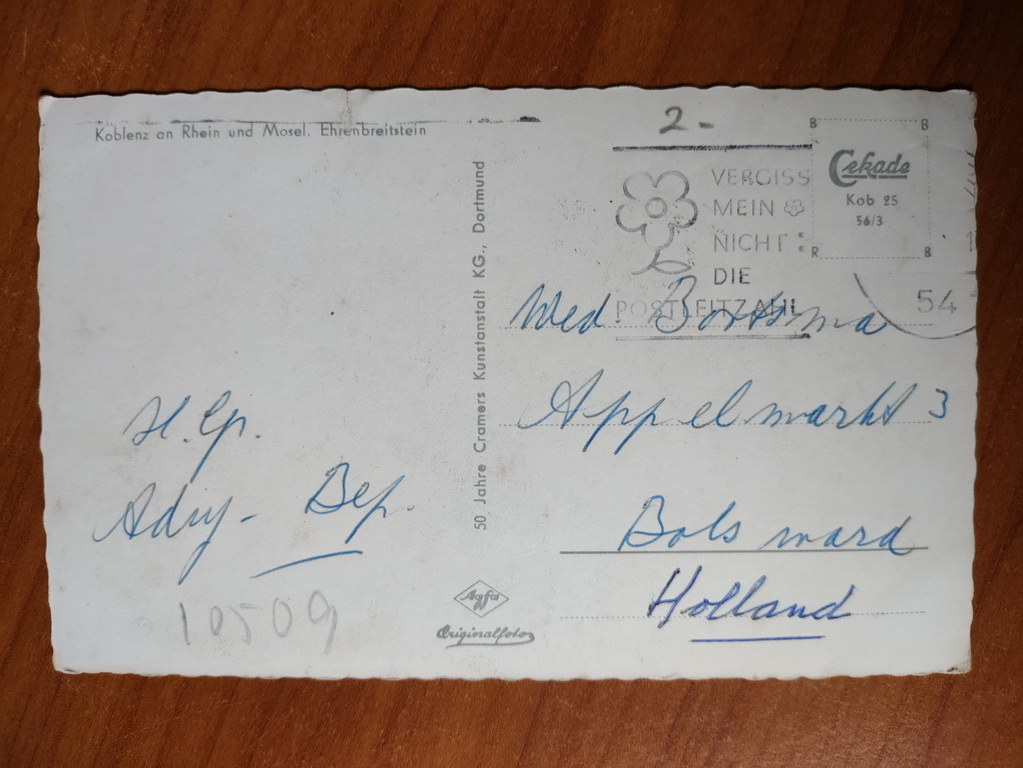 Koblenz an Rhein und Mosel. Ehrenbreitstein
H. Gr.
Adrij - Bep.
10509
50 Jahre Cramers Kunstanstalt KG., Dortmund
Agfa
Originalfoto
2-
VERGISS
MEIN
NICHT
DIE
POSTLEITZAHL
B B
Cekade
Kob 25
56/3
R B
54
Wed. Bootsma
Appelmarkt 3
Bolsward
Holland